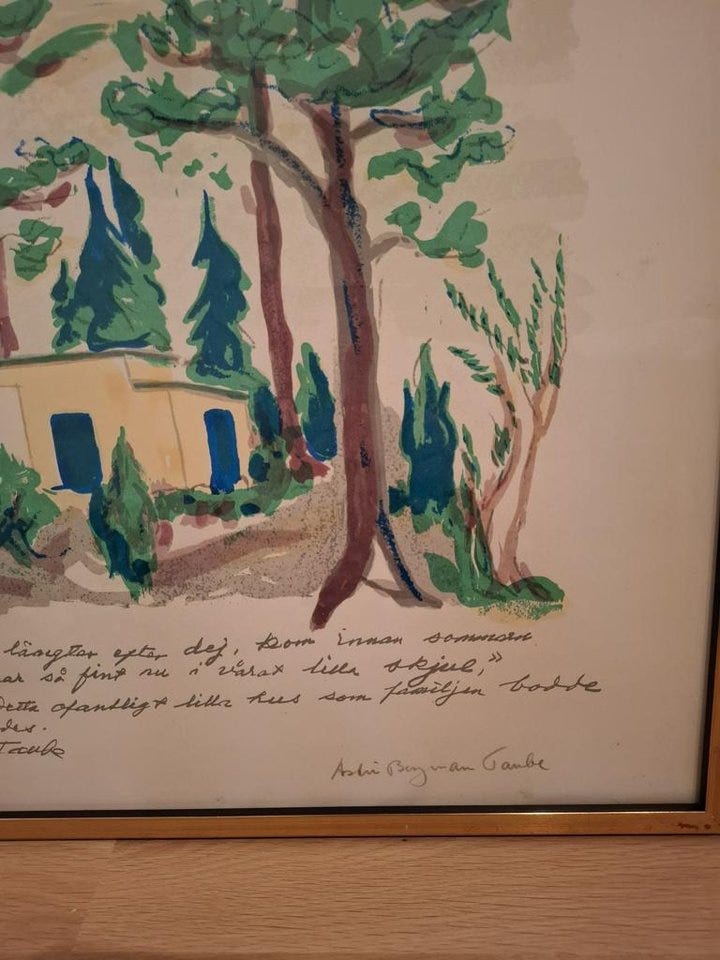 längtar efter dej, kom innan sommaren
ar så fint nu i vårat lilla skjul,"
Detta ofantligt lilla hus som familjen bodde
des.
Taube
Astri Bergman Taube